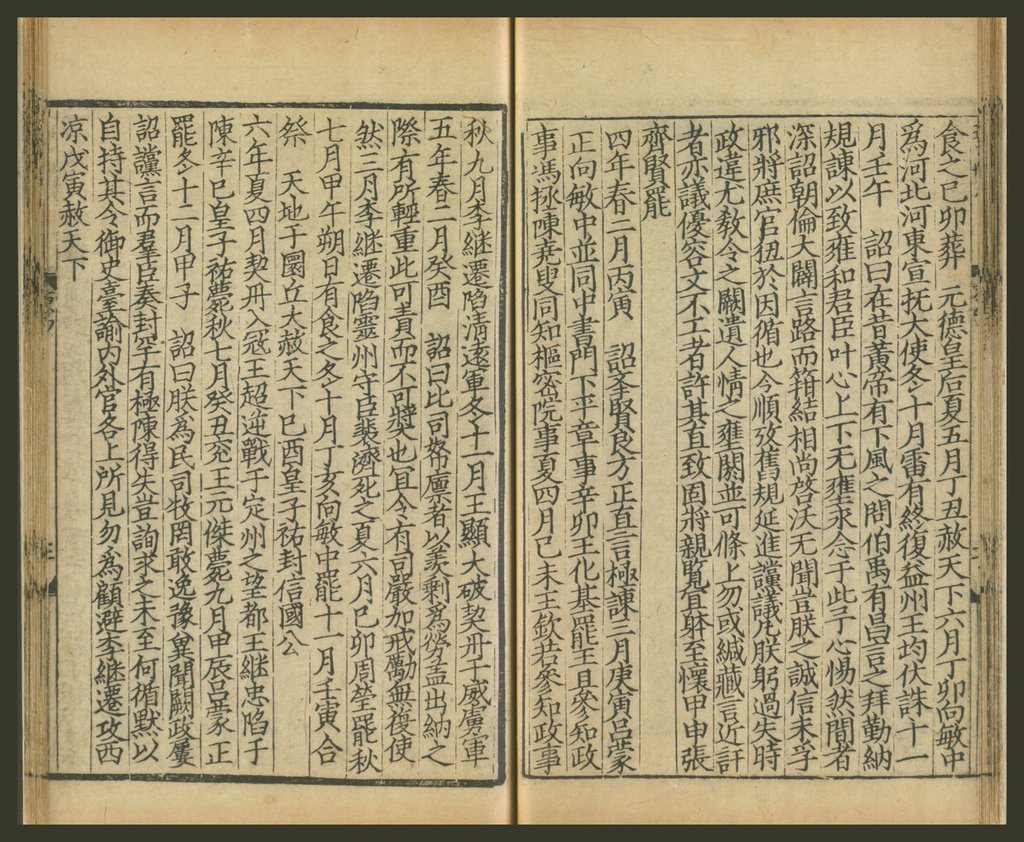 食之己卯葬　元德皇后夏五月丁丑赦天下六月丁卯向敏中
爲河北河東宣抚大使冬十月雷有終復益州王均伏誅十一
月壬午　詔曰在昔黃帝有下風之問伯禹有昌言之拜勤納
規諫以致雍和君臣叶心上下无壅求念于此予心惕然間者
深詔朝倫大闢言路而箝結相尚啓沃无聞豈朕之誠信未孚
邪將庶官狃於因循也今順攷舊規延進讜議凡朕躬過失時
政違尤教令之闕遺人情之壅閼並可條上勿或緘藏言近訐
者亦議優容文不工者許其直致固將親覧冝躰至懷甲申張
齊賢罷
四年春二月丙寅　詔荃賢良方正直言極諫三月庚寅吕蒙
正向敏中並同中書門下平章事辛卯王化基罷王旦參知政
事馮拯陳尭叟同知樞密院事夏四月己未王欽若參知政事
秋九月李継遷陷清遠軍冬十一月王顯大破契丹于威虜軍
五年春二月癸酉　詔曰比司帑廪者以羨剰爲勞盖出納之
際有所輕重此可責而不可奬也冝今有司嚴加戒勵無復使
然三月李継遷陷靈州守臣裴濟死之夏六月己卯周瑩罷秋
七月甲午朔日有食之冬十月丁亥向敏中罷十一月壬寅合
祭　天地于圜丘大赦天下己酉皇子祐封信國公
六年夏四月契丹入寇王超逆戰于定州之望都王継忠陷于
陳辛巳皇子祐薨秋七月癸丑兖王元傑薨九月甲辰吕蒙正
罷冬十二月甲子　詔曰朕爲民司牧罔敢逸豫兾聞闕政屢
詔讜言而羣臣奏封罕有極陳得失豈詢求之未至何循默以
自持其令御史臺諭内外官各上所見勿爲顧避李継遷攻西
凉戊寅赦天下